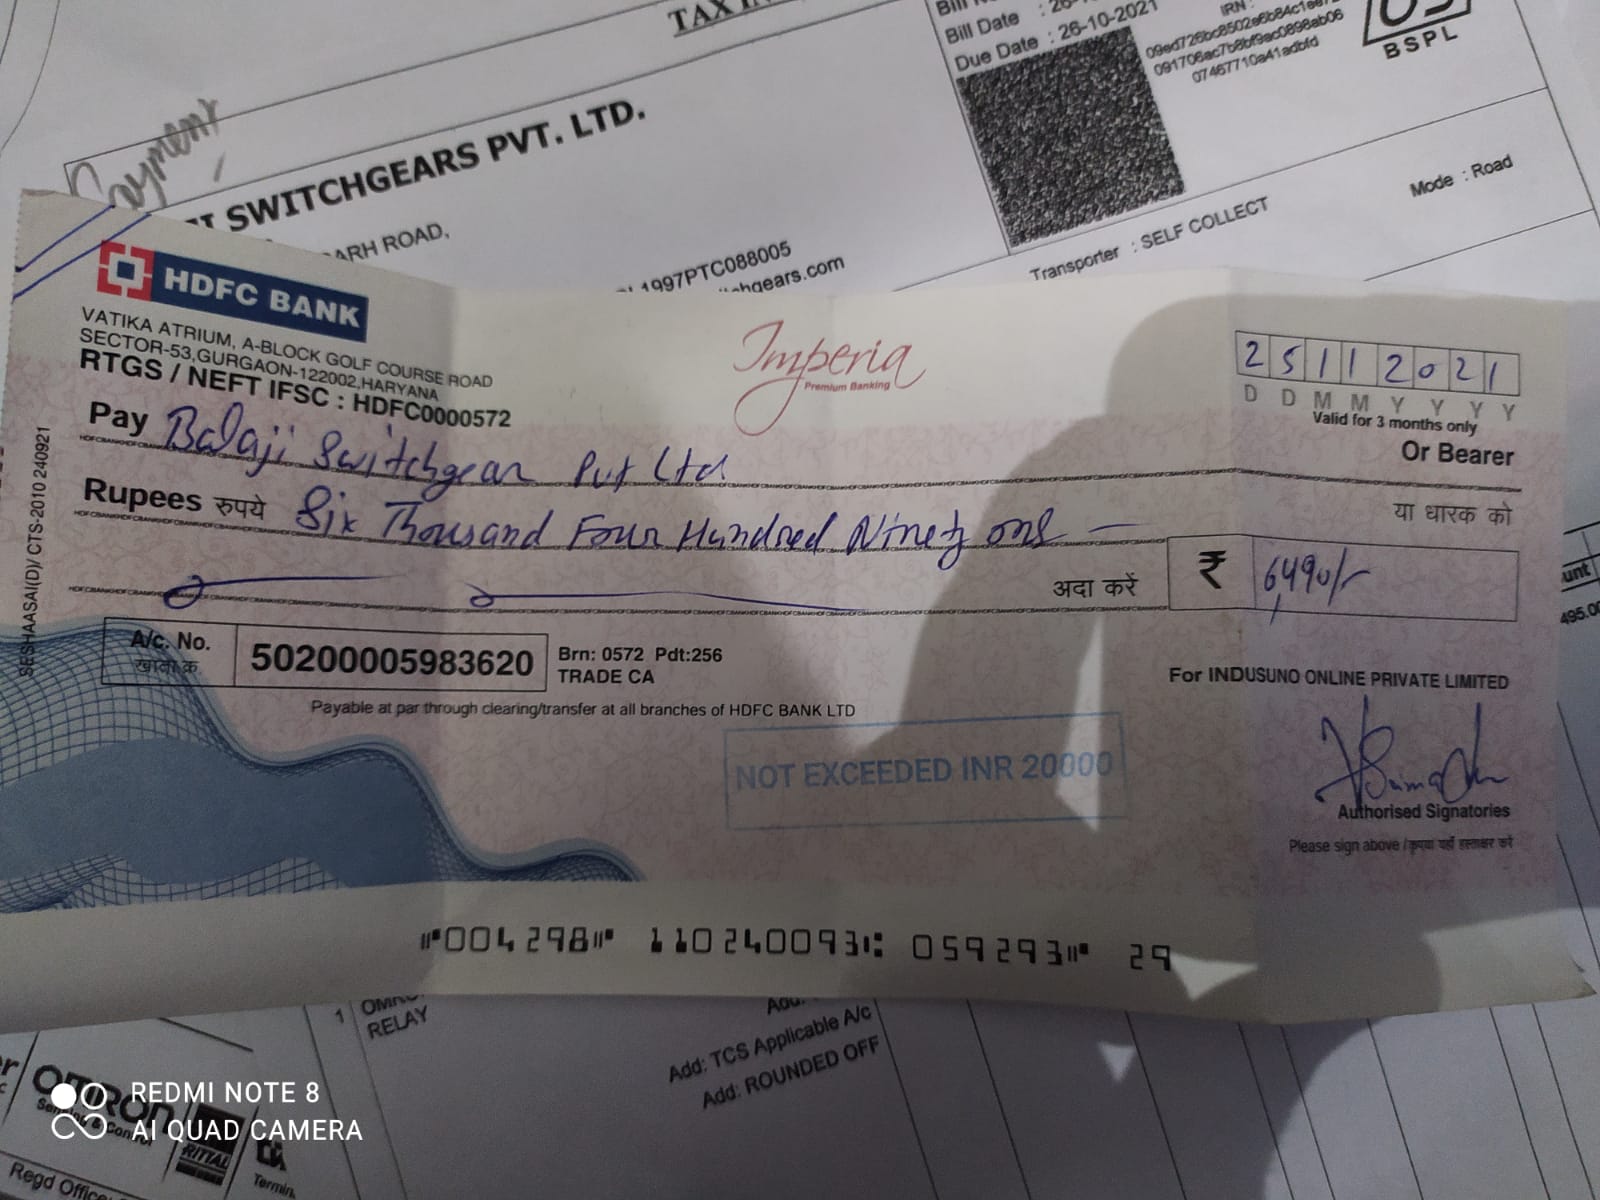 TAX
Bill Date : 26-
Due Date : 26-10-2021
IRN :
091706ac7b8bf9ac0898ab06
07467710a41adbfd
BSPL
Payment
SWITCHGEARS PVT. LTD.
ARH ROAD,
1997PTC088005
hgears.com
Transporter : SELF COLLECT
Mode : Road
HDFC BANK
VATIKA ATRIUM, A-BLOCK GOLF COURSE ROAD
SECTOR-53,GURGAON-122002,HARYANA
RTGS / NEFT IFSC : HDFC0000572
Imperia
Premium Banking
25112021
D D M M Y Y Y Y
Valid for 3 months only
Pay Balaji Switchgear Pvt Ltd
Or Bearer
Rupees रुपये Six Thousand Four Hundred Ninety one
या धारक को
अदा करें ₹ 6,490/-
A/c. No. 50200005983620 Brn: 0572 Pdt:256
खाता क्र. TRADE CA
For INDUSUNO ONLINE PRIVATE LIMITED
Payable at par through clearing/transfer at all branches of HDFC BANK LTD
NOT EXCEEDED INR 20000
Authorised Signatories
Please sign above / कृपया यहाँ हस्ताक्षर करें
SESHAASAI(D)/ CTS-2010 240921
⑈004298⑈ 110240093⑆ 059293⑈ 29
495.00
1
RELAY
Add: TCS Applicable A/c
Add: ROUNDED OFF
OMRON
RITTAL
Regd Office
REDMI NOTE 8
AI QUAD CAMERA